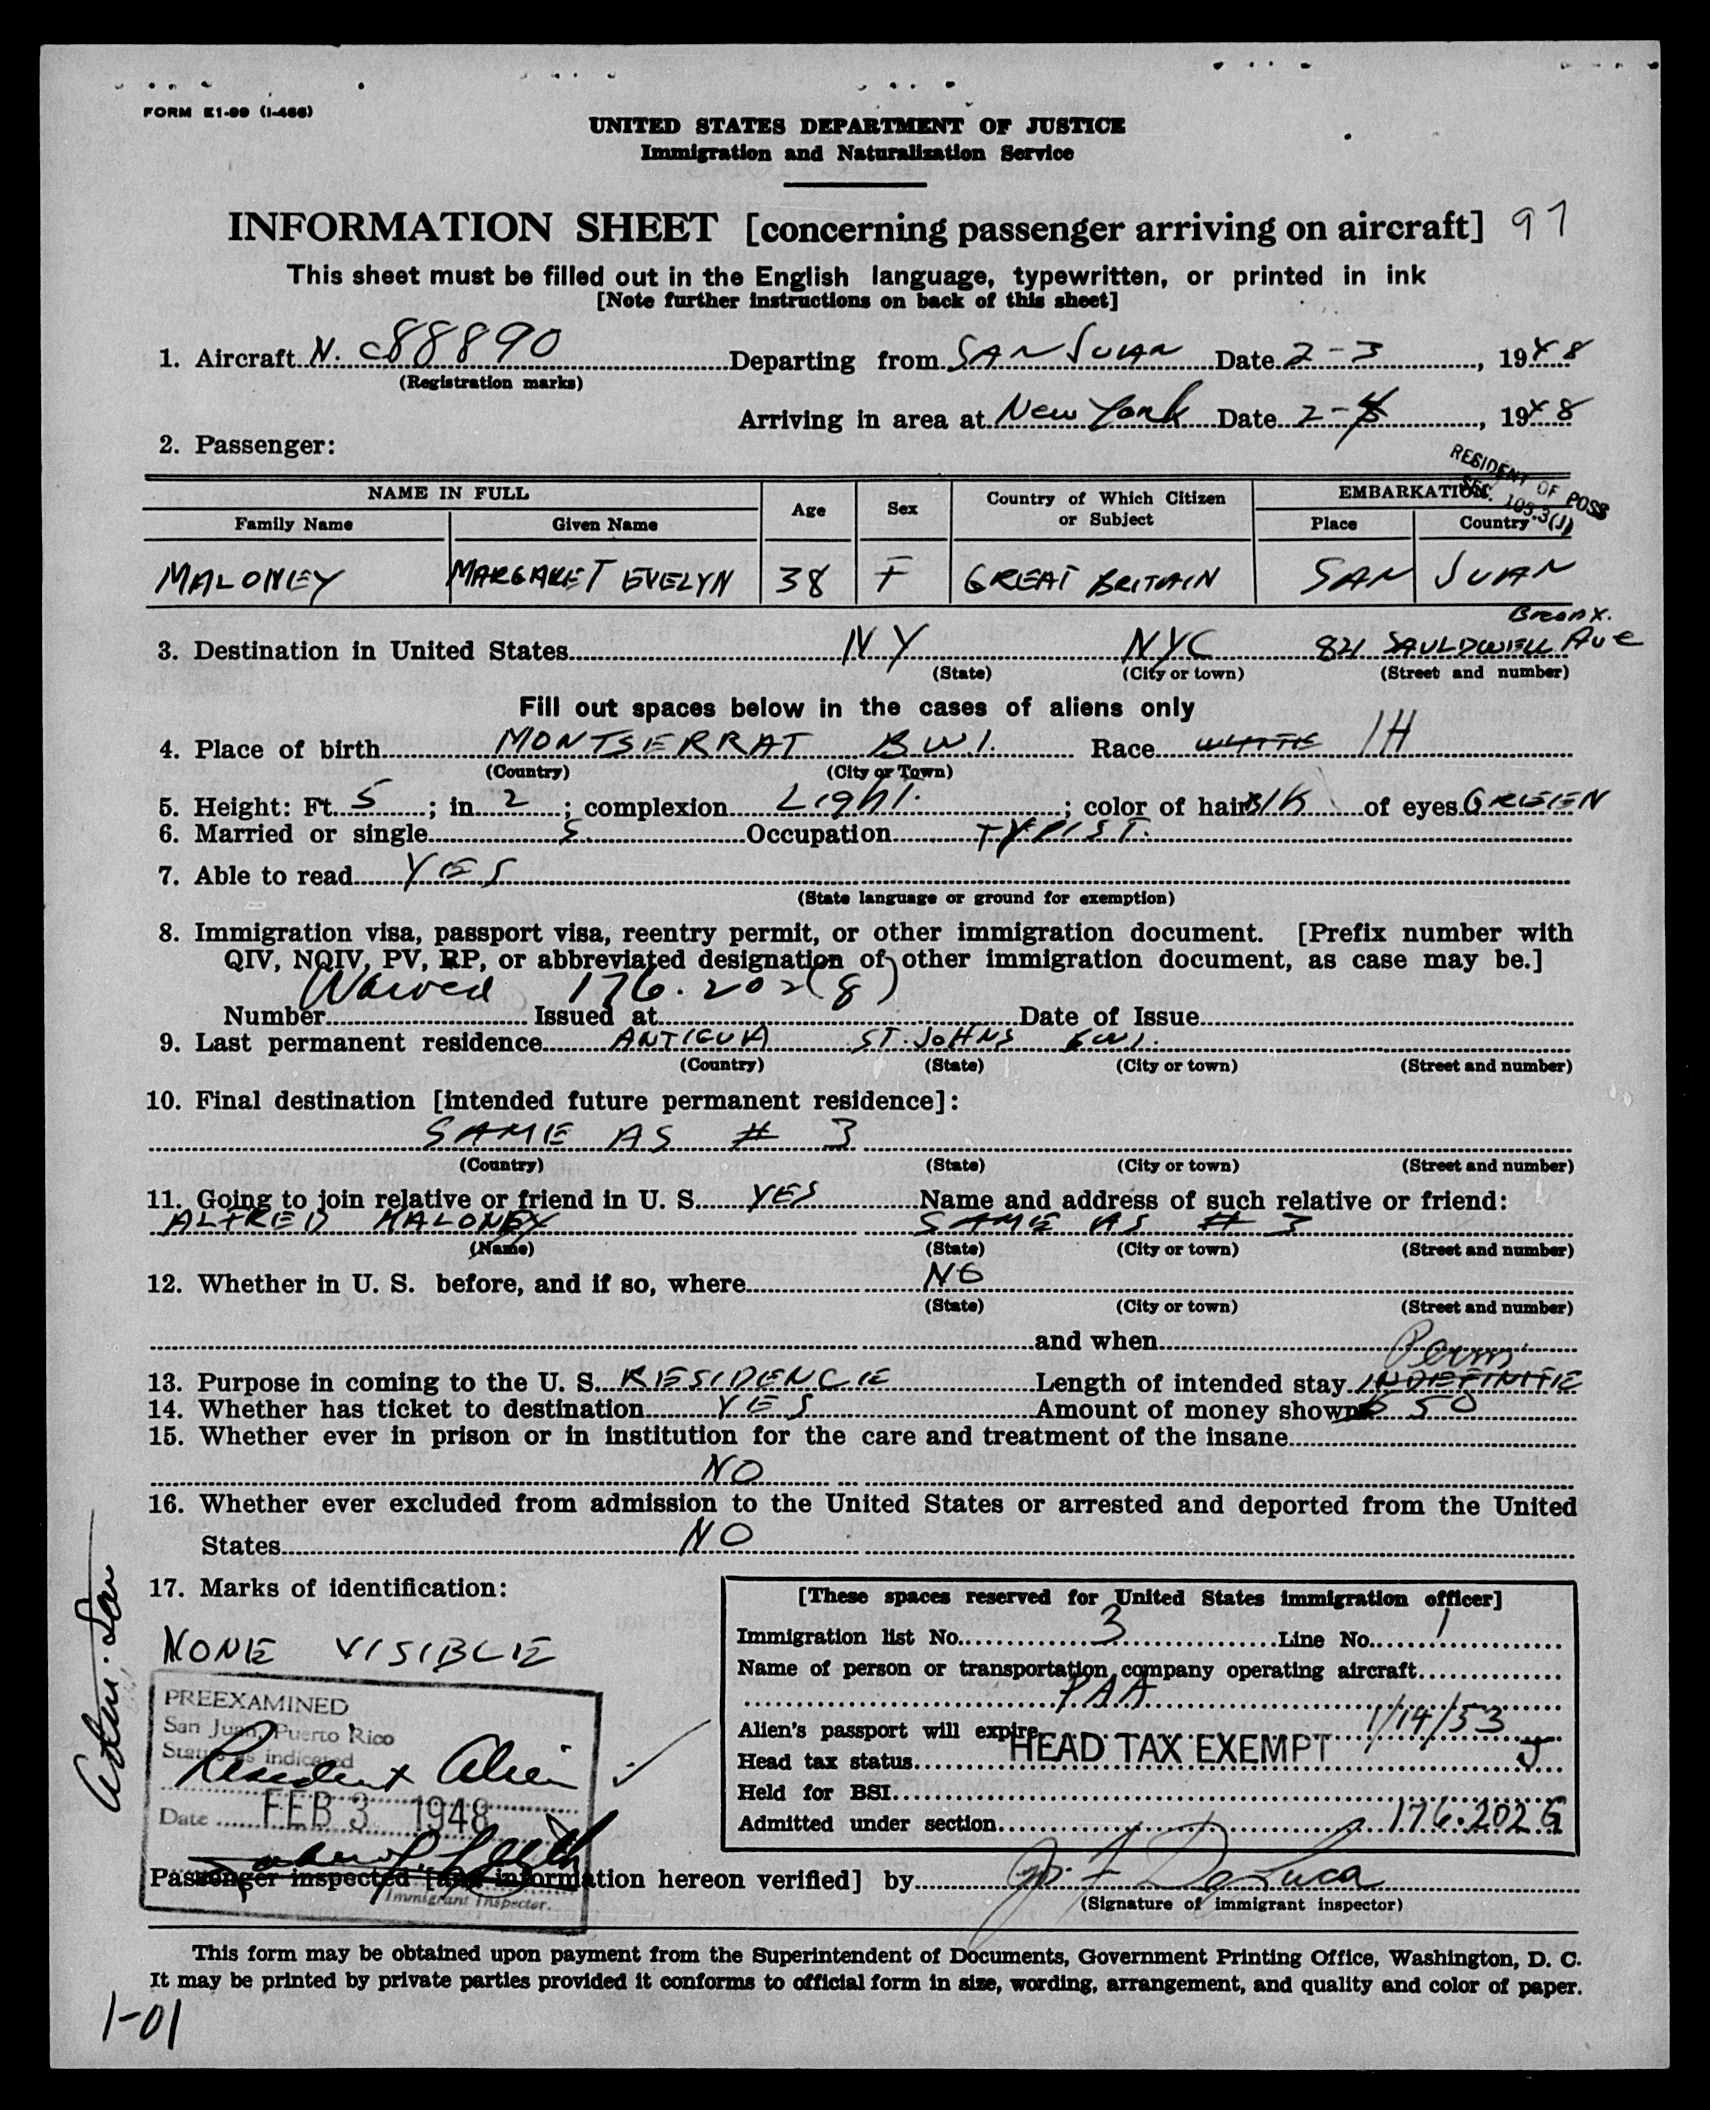 FORM I-466 (I-466)
UNITED STATES DEPARTMENT OF JUSTICE
Immigration and Naturalization Service
INFORMATION SHEET [concerning passenger arriving on aircraft] 97
This sheet must be filled out in the English language, typewritten, or printed in ink
[Note further instructions on back of this sheet]
1. Aircraft N. C88890 Departing from SAN JUAN Date 2-3, 1948
(Registration marks)
Arriving in area at New York Date 2-4, 1948
2. Passenger:
RESIDENT OF POSS
SEC. 105.3(J)
NAME IN FULL Age Sex Country of Which Citizen or Subject EMBARKATION
Family Name Given Name Place Country
MALONEY MARGARET EVELYN 38 F GREAT BRITAIN SAN JUAN
BRONX.
3. Destination in United States NY NYC 821 SAULDWELL Ave
(State) (City or town) (Street and number)
Fill out spaces below in the cases of aliens only
4. Place of birth MONTSERRAT B.W.I. Race WHITE IH
(Country) (City or Town)
5. Height: Ft. 5; in. 2; complexion Light.; color of hair Blk of eyes GREEN
6. Married or single S Occupation TYPIST.
7. Able to read YES
(State language or ground for exemption)
8. Immigration visa, passport visa, reentry permit, or other immigration document. [Prefix number with
QIV, NQIV, PV, RP, or abbreviated designation of other immigration document, as case may be.]
Waived 176.202(g)
Number Issued at Date of Issue
9. Last permanent residence ANTIGUA ST. JOHNS BWI.
(Country) (State) (City or town) (Street and number)
10. Final destination [intended future permanent residence]:
SAME AS # 3
(Country) (State) (City or town) (Street and number)
11. Going to join relative or friend in U. S. YES Name and address of such relative or friend:
ALFRED MALONEY SAME AS # 3
(Name) (State) (City or town) (Street and number)
12. Whether in U. S. before, and if so, where NO
(State) (City or town) (Street and number)
and when
Perm.
13. Purpose in coming to the U. S. RESIDENCE Length of intended stay INDEFINITE
14. Whether has ticket to destination YES Amount of money shown $ 50
15. Whether ever in prison or in institution for the care and treatment of the insane
NO
16. Whether ever excluded from admission to the United States or arrested and deported from the United
States NO
17. Marks of identification:
NONE VISIBLE
[These spaces reserved for United States immigration officer]
Immigration list No. 3 Line No. 1
Name of person or transportation company operating aircraft
PAA
Alien's passport will expire 1/14/53
Head tax status HEAD TAX EXEMPT
Held for BSI
Admitted under section 176.202G
PREEXAMINED
San Juan, Puerto Rico
Status as indicated
Resident Alien
Date FEB 3 1948
Immigrant Inspector.
Passenger inspected [and information hereon verified] by J. F. DeLuca
(Signature of immigrant inspector)
This form may be obtained upon payment from the Superintendent of Documents, Government Printing Office, Washington, D. C.
It may be printed by private parties provided it conforms to official form in size, wording, arrangement, and quality and color of paper.
1-01